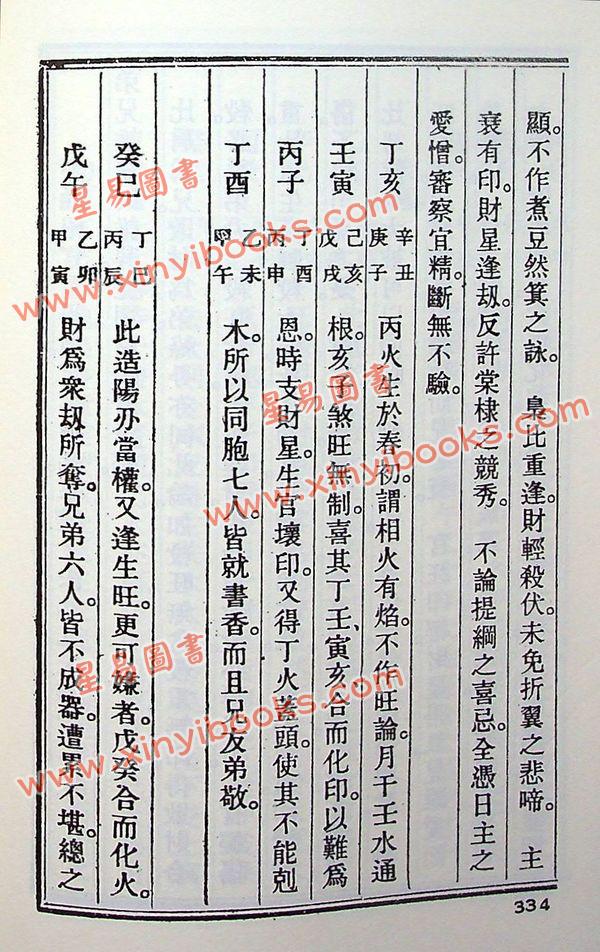 顯。不作煮豆然箕之詠。 梟比重逢。財輕殺伏。未免折翼之悲啼。 主
衰有印。財星逢劫。反許棠棣之競秀。 不論提綱之喜忌。全憑日主之
愛憎。審察宜精。斷無不驗。
丁亥 辛丑 庚子 丙火生於春初。謂相火有焰。不作旺論。月干壬水通
壬寅 己亥 戊戌 根。亥子煞旺無制。喜其丁壬、寅亥合而化印。以難爲
丙子 丁酉 丙申 恩。時支財星。生官壞印。又得丁火蓋頭。使其不能剋
丁酉 乙未 甲午 木。所以同胞七人。皆就書香。而且兄友弟敬。
癸巳 丁巳 丙辰 此造陽刃當權。又逢生旺。更可嫌者。戊癸合而化火。
戊午 乙卯 甲寅 財爲衆劫所奪。兄弟六人。皆不成器。遭累不堪。總之
334
星易圖書
www.xinyibooks.com
星易圖書
www.xinyibooks.com
星易圖書
www.xinyibooks.com